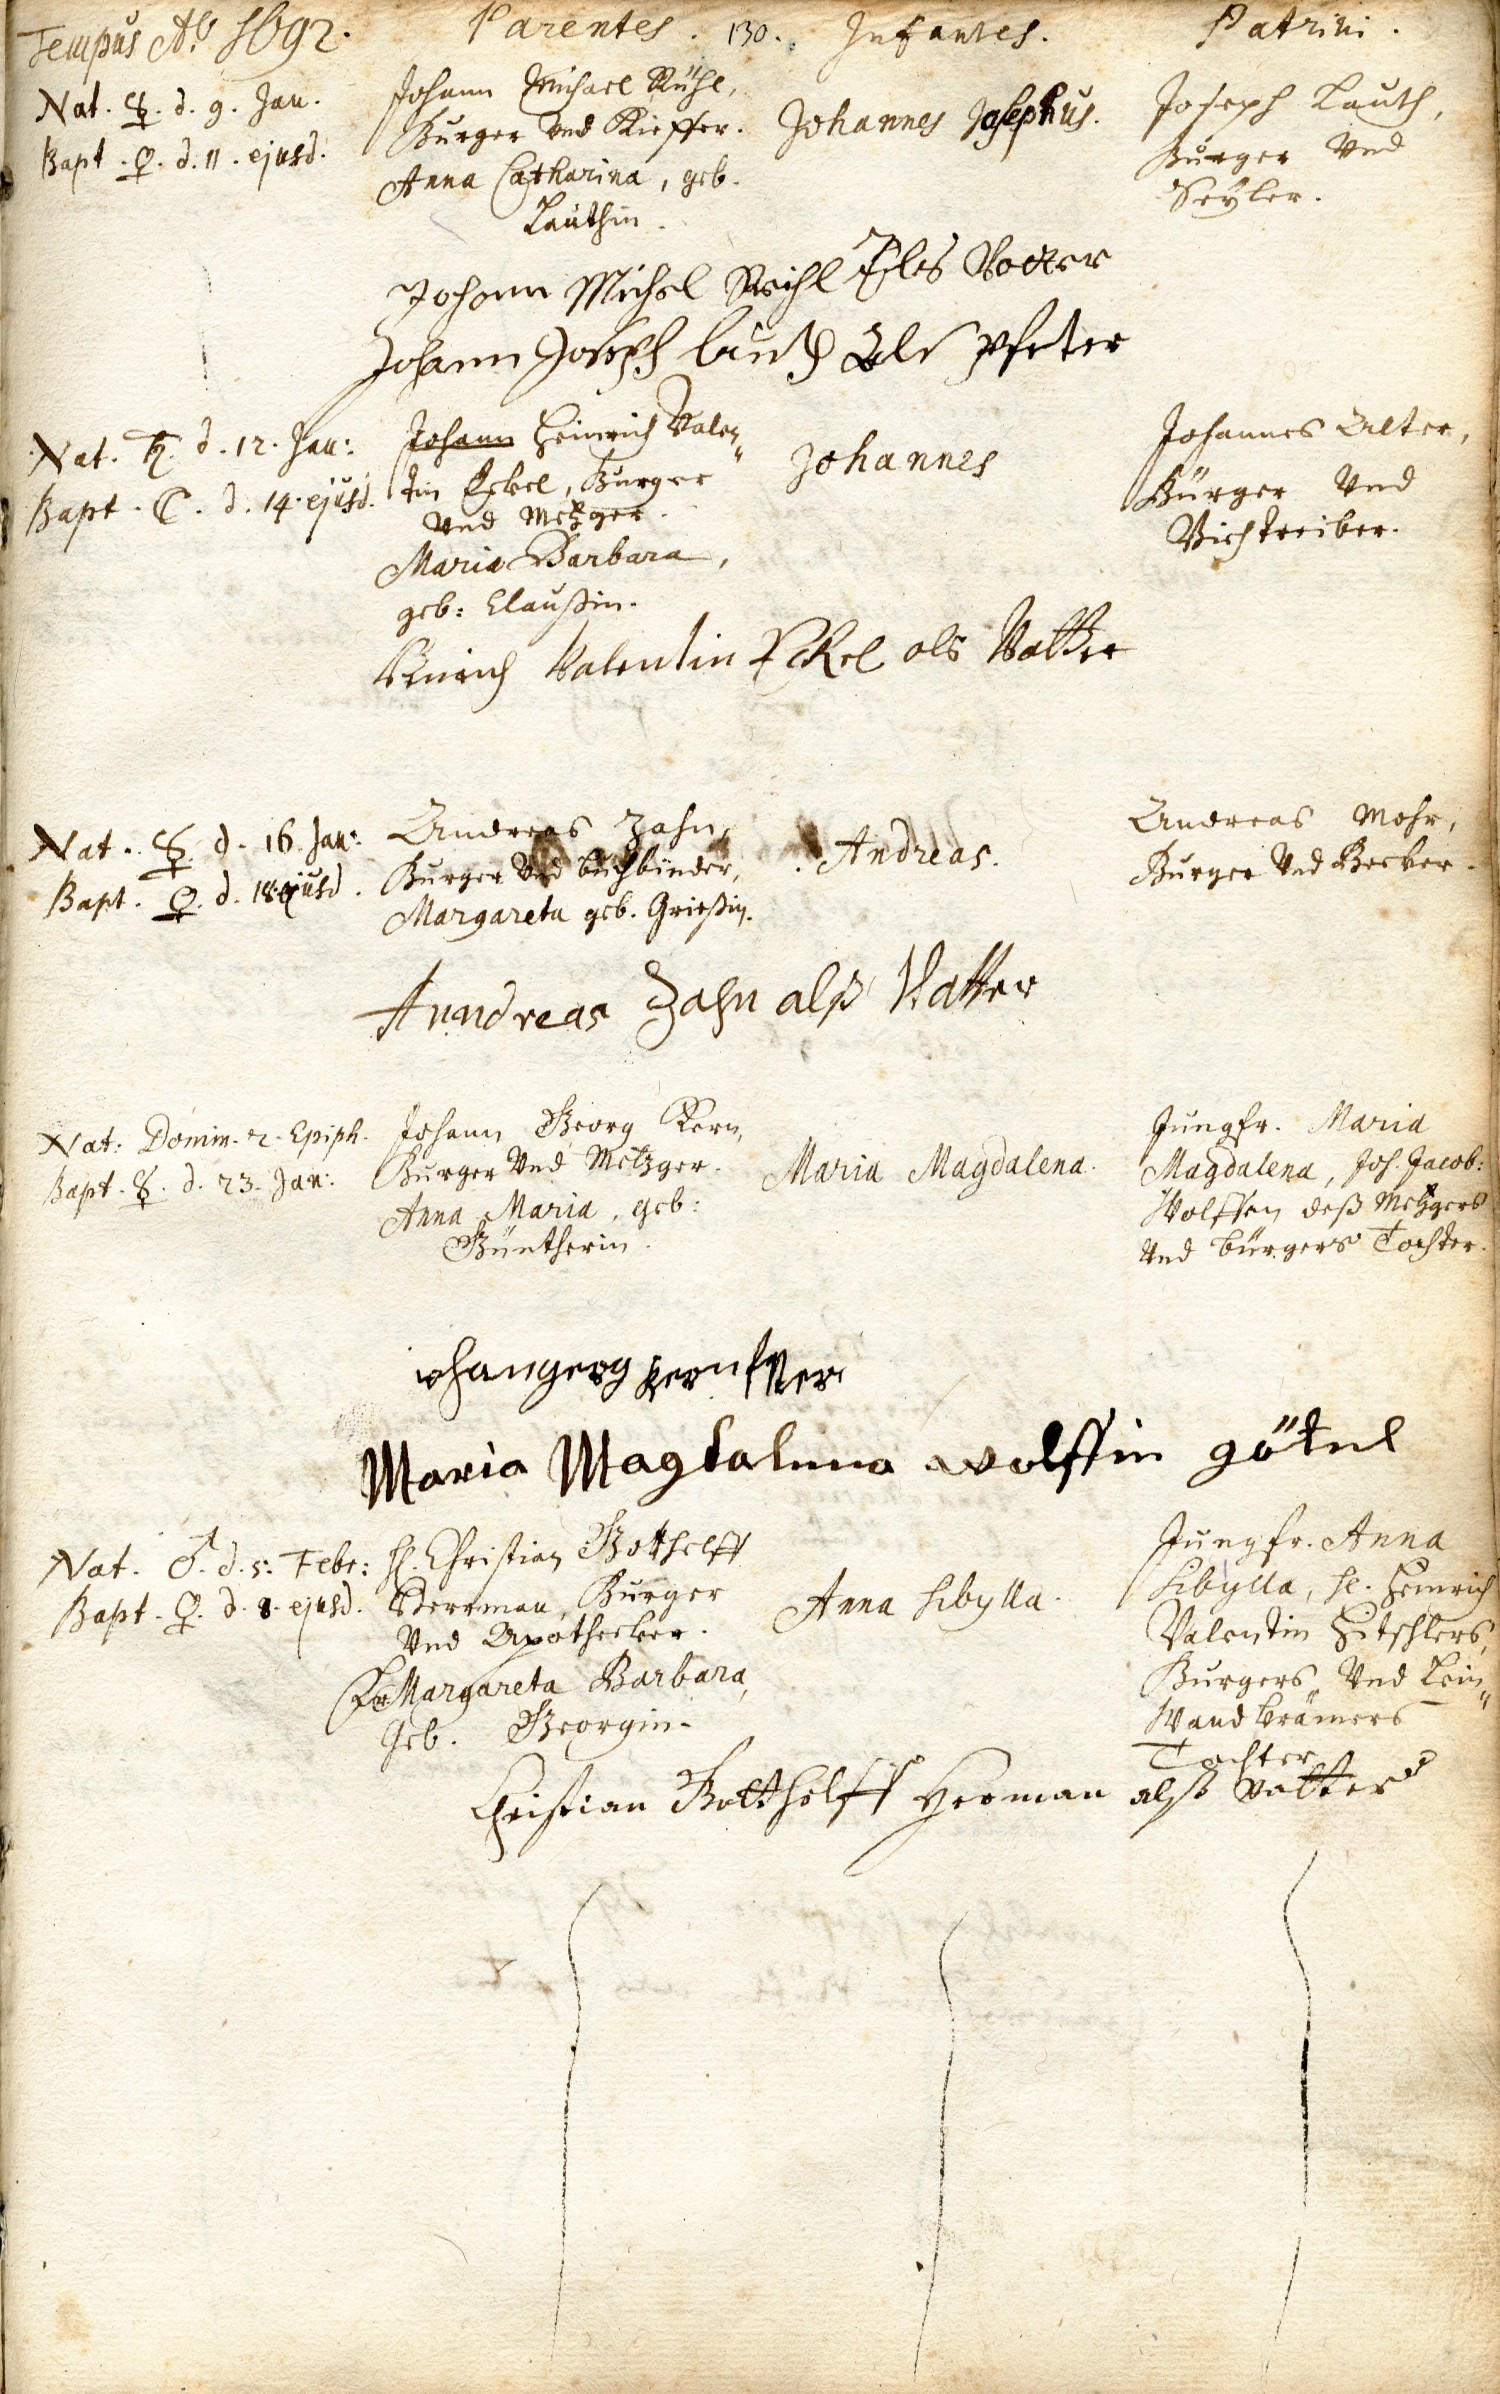 Tempus Ao. 1692. Parentes. 130. Infantes. Patrini.
Nat. ☿. d. 9. Jan.
Bapt. ♀. d. 11. ejusd.
Johann Michael Rühl,
Burger Und Kieffer.
Anna Catharina, geb.
Lauthin.
Johannes Josephus.
Joseph Lauth,
Burger Und
Seyler.
Johann Michel Reihl Als Vatter
Johann Joseph lauth Als pfeter
Nat. ♄. d. 12. Jan:
Bapt. ☾. d. 14. ejusd.
Johann Heinrich Valen„
tin Eckel, Burger
Und Metzger.
Maria Barbara,
geb: Claußin.
Johannes
Johannes Alter,
Bürger Und
Viehtreiber.
Heinrich Valentin Eckel als Vatter
Nat. ☿. d. 16. Jan:
Bapt. ♀. d. 18. ejusd.
Andreas Zahn,
Burger Und buchbinder,
Margareta geb. Grießin.
Andreas.
Andreas Mohr,
Burger Und Becker.
Anndreas Zahn alß Vatter
Nat: Domin. 2. Epiph.
Bapt. ☿. d. 23. Jan:
Johann Georg Kern,
Burger Und Metzger.
Anna Maria, geb:
Güntherin.
Maria Magdalena.
Jungfr. Maria
Magdalena, Joh. Jacob:
Wolffen deß Metzgers
Und bürgers Tochter.
Maria Magdalena wolffin götel
Nat. ♂. d. 5. Febr:
Bapt. ♀. d. 8. ejusd.
H. Christian Gotthelff
Herrman, Burger
Und Apothecker.
Fr. Margareta Barbara,
geb. Georgin.
Anna Sibylla.
Jungfr. Anna
Sibylla, H. Heinrich
Valentin Hitschlers,
Burgers Und Lein„
Wandkrämers
Tochter
Christian Gotthelff Herman alß Vatter